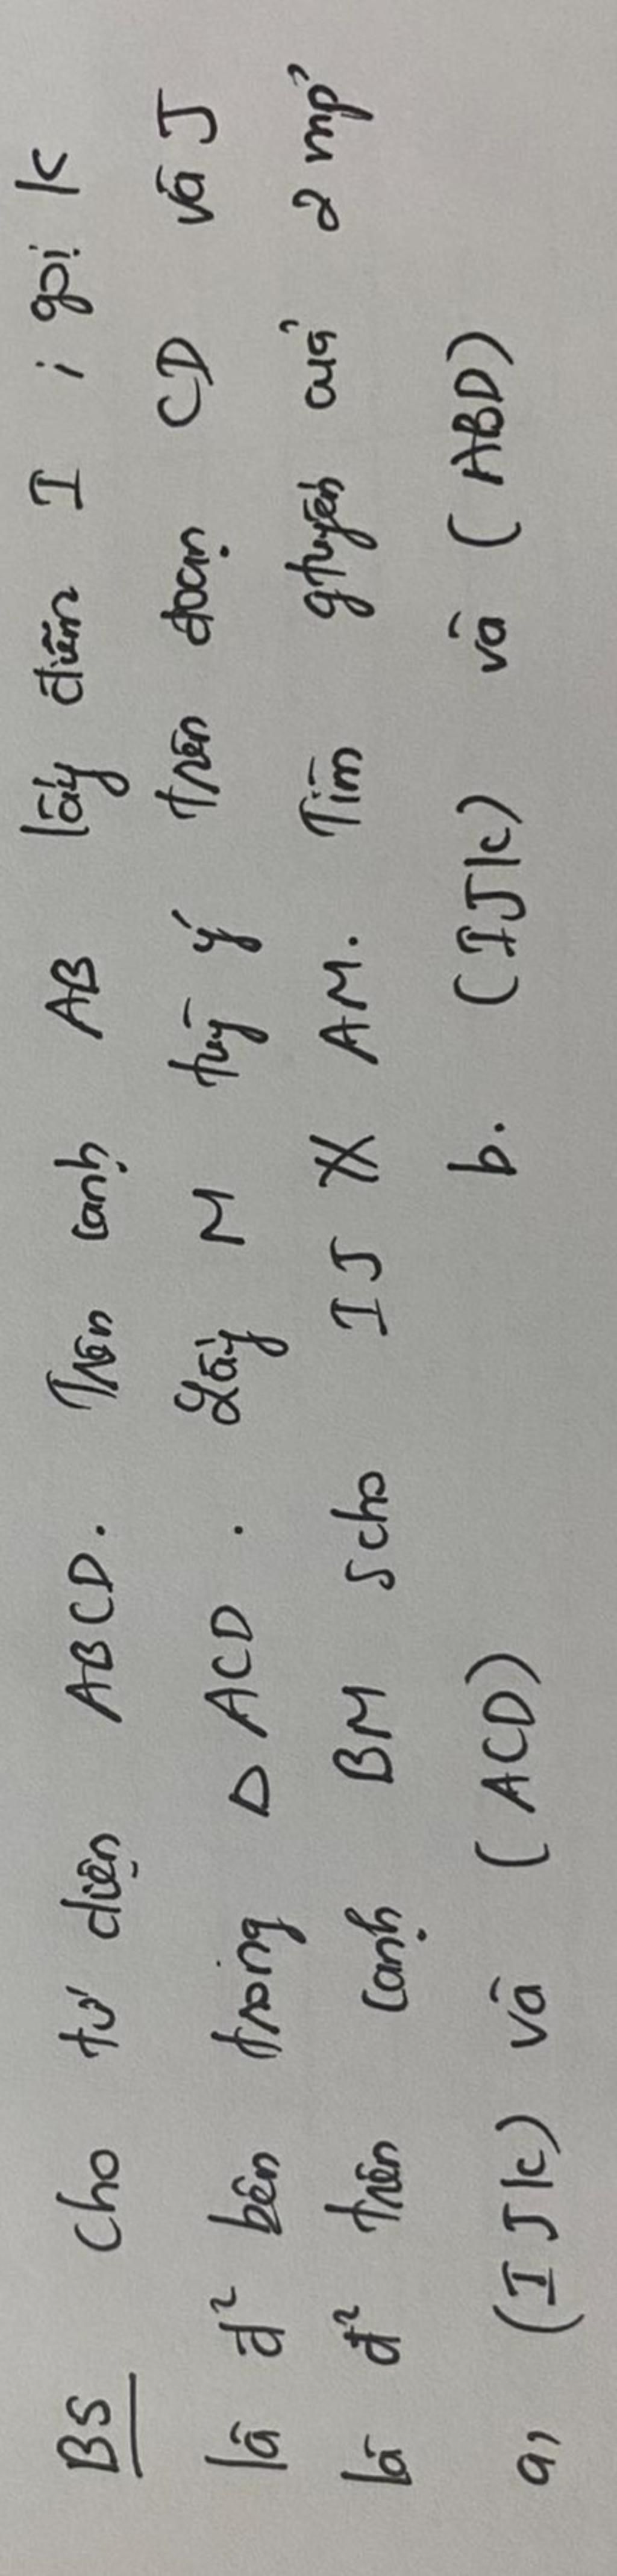 B5 Cho tứ diện ABCD. Trên cạnh AB lấy điểm I ; gọi K
là đ² bên trong Δ ACD . Lấy M tuỳ ý trên đoạn CD và J
là đ² trên cạnh BM scho IJ ∦ AM. Tìm gtuyến của 2 mp'
a, (IJK) và (ACD) b. (IJK) và (ABD)